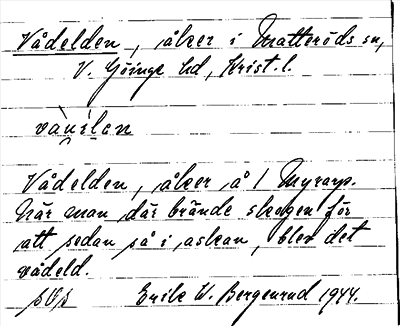 Vådelden, åker i Matteröds sn,
V. Göinge hd, Krist. l.
Vådelden, åker å 1 Myrarp.
När man där brände skogen för
att sedan så i askan, blev det
vådeld.
Erik W. Bergenrud 1944.